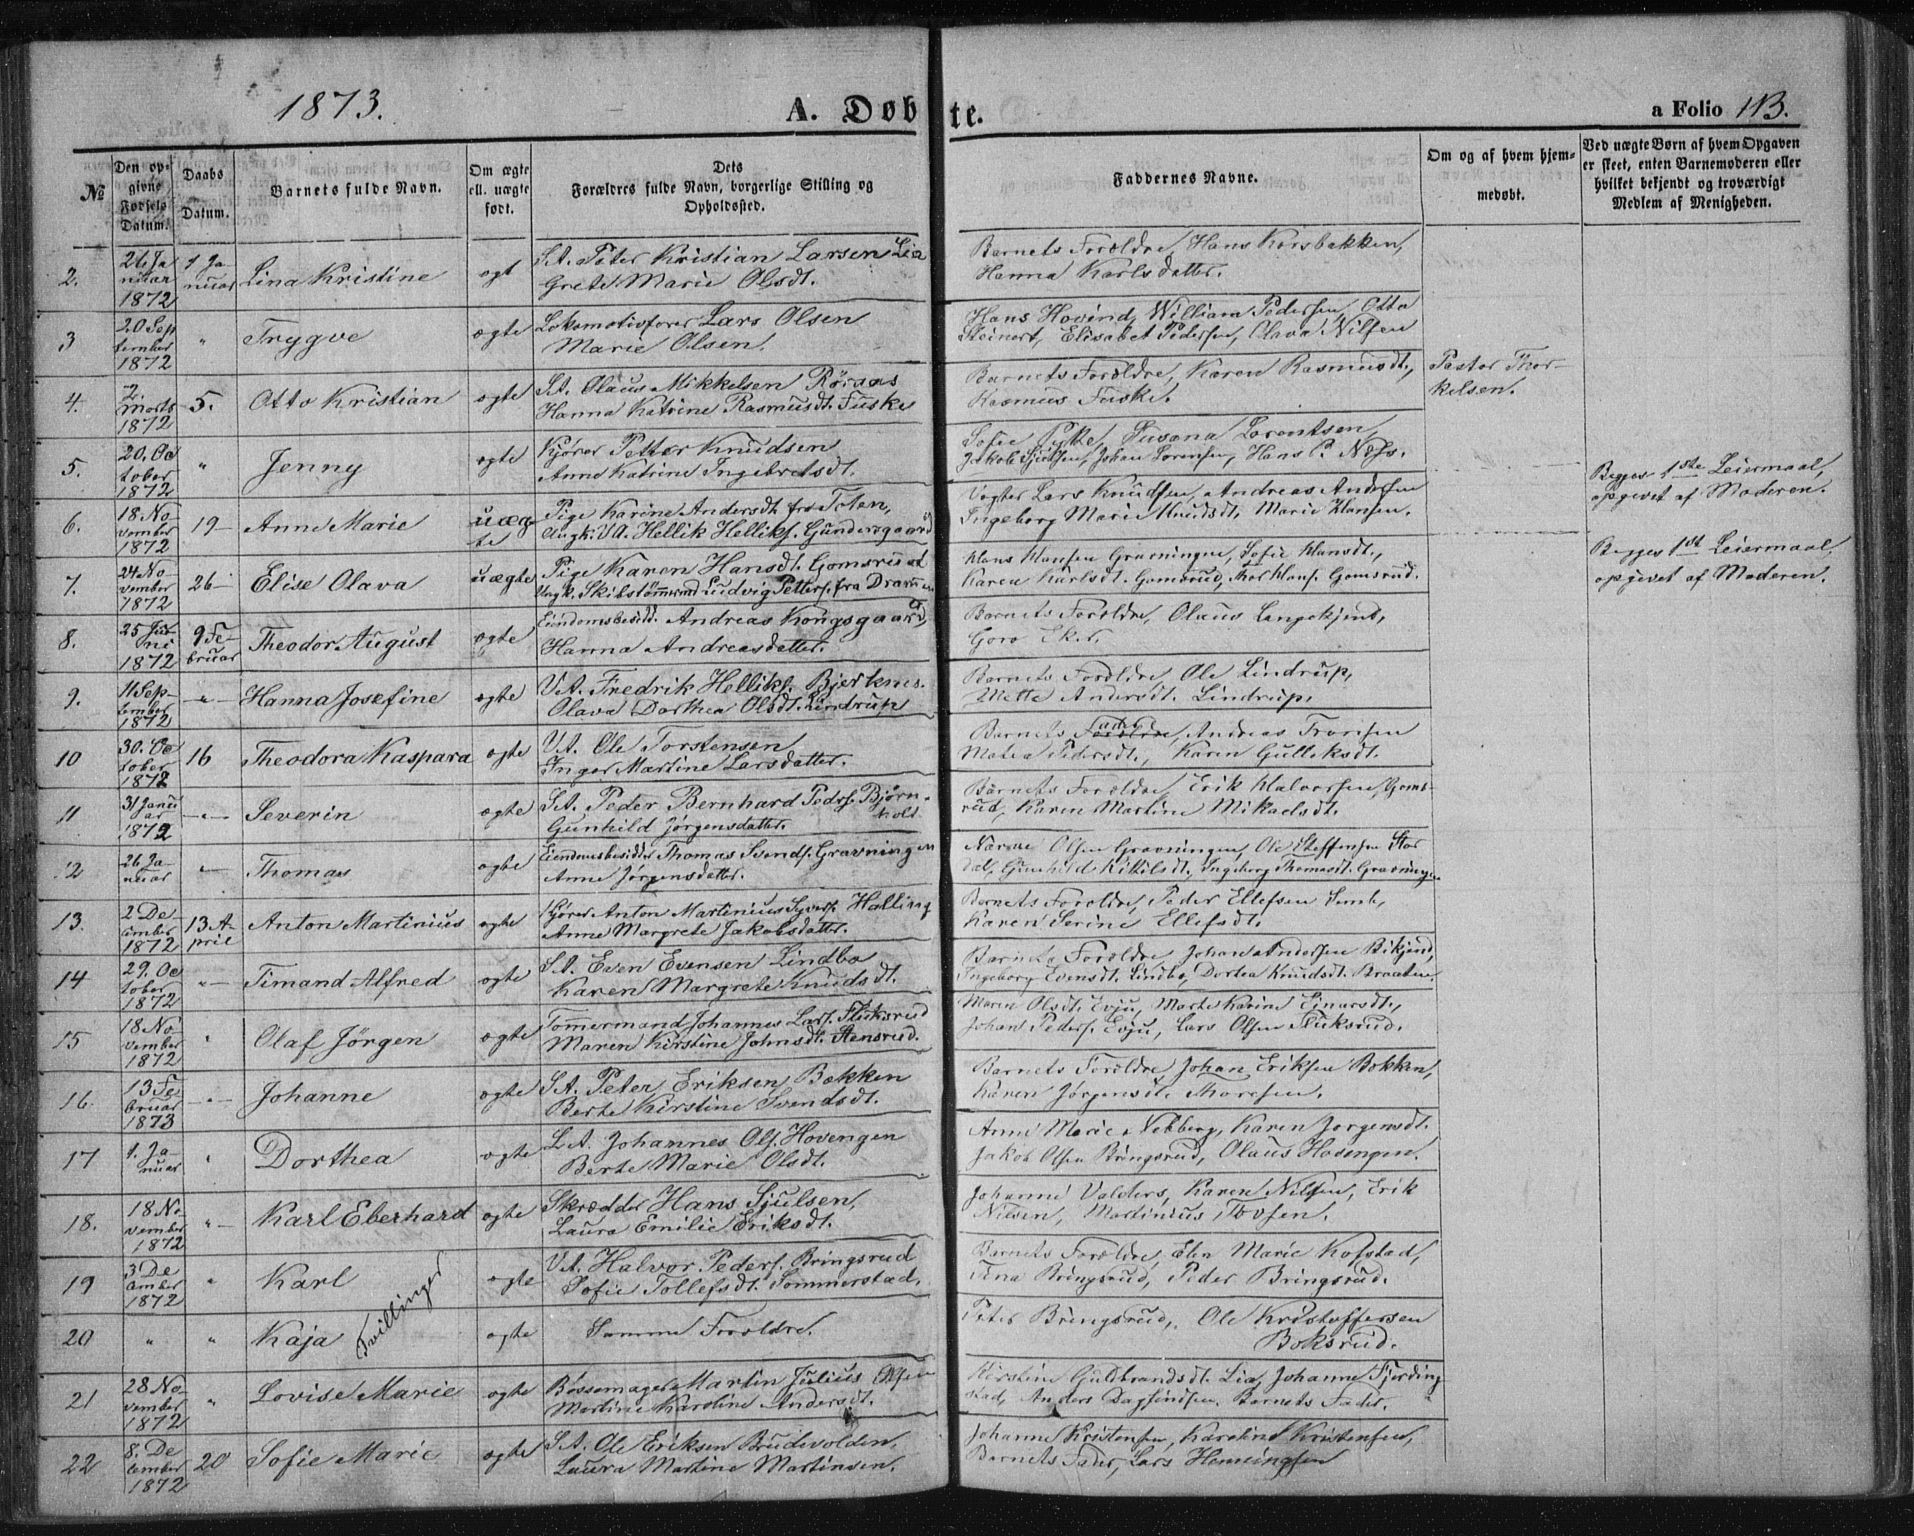 1873. A. Døbte. a Folio 113.
№ | Den opgivne Fødsels Datum. | Daabs Datum. | Barnets fulde Navn. | Om ægte ell. uægte født. | Dets Forældres fulde Navn, borgerlige Stilling og Opholdssted. | Faddernes Navne. | Om og af hvem hjemmedøbt. | Ved uægte Børn af hvem Opgaven er skeet, enten Barnemoderen eller hvilket bekjendt og troværdigt Medlem af Menigheden.
2. | 26 Januar 1872 | 1 Januar | Lina Kristine | ægt | S.A. Peter Kristian Larsen Lia
Grete Marie Olsdt. | Barnets Forældre, Hans Korsbakken,
Hanna Karlsdatter.
3 | 20 September 1872 | " | Trygve | ægte | Lokomotivfører Lars Olsen
Marie Olsen. | Hans Hovind, William Pedersen, Otto
Steinert, Elisabet Pedersen, Olava Nilsen
4. | 2. Marts 1872 | 5. | Otto Kristian | ægte | S.A. Olaus Mikkelsen Röraas
Hanna Katrine Rasmusdt. Fuske | Barnets Forældre, Karen Rasmusdt.,
Rasmus Fuske. | Pastor Thorkelsen.
5. | 20. October 1872 | " | Jenny | ægte | Kjører Petter Knudsen
Anne Katrine Ingebretsdt. | Sofie Fyke, Susana Lorentsen,
Jakob Sjølsen, Johan Sorensen, Hans P. Næss.
6. | 18 November 1872 | 19 | Anne Marie | uægte | Pige Karine Andersdt. fra Toten,
Ungk. V.A. Hellik Helliks. Gundersgaard | Vogter Lars Knudsen, Andreas Andersen
Ingeborg Marie Knudsdt. Marie Hansen. | Begges 1ste Leiermaal,
opgivet af Moderen.
7. | 24 November 1872 | 26 | Elise Olava | uægte | Pige Karen Hansdt. Gomsrud
Ungk. Skibstømmermd Ludvig Petters. fra Drammen | Hans Hansen Gravningen, Sofie Hansdt.,
Karen Karlsdt. Gomsrud, Thor Hans. Gomsrud. | Begges 1st Leiermaal,
opgivet af Moderen.
8. | 25 Juni 1872 | 9 Februar | Theodor August | ægte | Eiendomsbesidd. Andreas Kongsgaard,
Hanna Andreasdatter. | Barnets Forældre, Olaus Langekjend,
Goro Eker.
9. | 11 September 1872 | " | Hanna Josefine | ægte | V.A. Fredrik Helliks. Bjerknes.
Olava Dorthea Olsdt. Lindrup | Barnets Forældre, Ole Lindrup,
Mette Andersdt. Lindrup.
10 | 30. October 1872 | 16 | Theodora Kaspara | ægte | V.A. Ole Torstensen
Inger Martine Larsdatter. | Barnets Fader, Andreas Fronsen
Matea Pedersdt., Karen Gulleksdt.
11 | 31 Januar 1872 | " | Severin | ægte | S.A. Peder Bernhard Peders. Bjørnhold
Gunhild Jørgensdatter. | Barnets Forældre, Erik Halvorsen Gomsrud, Karen Martine Mikaelsdt.
12 | 26 Januar | " | Thomas | ægte | Eiendomsbesidder Thomas Svends. Gravningen
Anne Jørgensdatter. | Olsen Gravningen, Ole Steffensen Stordal, Gunhild Kittilsdt., Ingeborg Thomasdt. Gravningen
13. | 2 December 1872 | 13. April | Anton Martinius | ægte | Kjører Anton Martinius Syvers. Halling
Anne Margrete Jakobsdatter. | Barnets Forældre, Peder Ellefsen,
Karen Serine Ellefsdt.
14 | 29. October 1872 | " | Timand Alfred | ægte | S.A. Even Evensen Lindbo
Karen Margrete Knudsdt. | Barnets Forældre, Johan Andersen Bikjend,
Ingeborg Evensdt. Lindbo, Dortea Knudsdt. Braaten.
15 | 18 November 1872 | " | Olaf Jörgen | ægte | Tömermand Johannes Lars. Fliksrud
Maren Kirstine Johnsdt. Aensrud. | Maren Olsdt. Evju, Marte Karine Einarsdt.,
Johans Peders. Evju, Lars Olsen Fliksrud.
16. | 13 Februar 1873 | " | Johanne | ægte | S.A. Peter Eriksen Bakken
Berte Kirstine Svendsdt. | Barnets Forældre, Johan Eriksen Bakken,
Karen Jørgensdt. Moresen.
17 | 1. Januar | " | Dorthea | ægte | L.A. Johannes Ols. Hovengen
Berte Marie Olsdt. | Anne Marie Nebberg, Karen Jorgensdt.
Jakob Olsen Bringsrud, Olaus Hovengen.
18. | 18 November 1872 | " | Karl Eberhard | ægte | Skrædder Hans Sjulsen,
Laura Emilie Eriksdt. | Johanne Valders, Karen Nilsen, Erik
Nilsen, Martinius Tovsen.
19 | 3 December 1872 | " | Karl | ægte | V.A. Halvor Peders. Bringsrud
Sofie Tollefsdt. Sommerstad. | Barnets Forældre, Elen Marie Kofstad,
Tina Bringsrud, Peder Bringsrud.
Tvillinger
20 | " | " | Kaja | ægte | Samme Forældre. | Peter Bringsrud, Ole Kristoffersen
Boksrud.
21 | 28 November 1872 | " | Lovise Marie | ægte | Bøssemager Martin Julius Olsen
Martine Karoline Andersdt. | Kirstine Guldbrandsdt. Lia, Johanne Fjerdingstad, Anders Dagfindsen, Barnets Fader.
22 | 8. December 1872 | 20 | Sofie Marie | ægte | S.A. Ole Eriksen Brudevolden,
Laura Martine Martinsen. | Johanne Kristensen, Karoline Kristensen,
Barnets Fader, Lars Henningsen